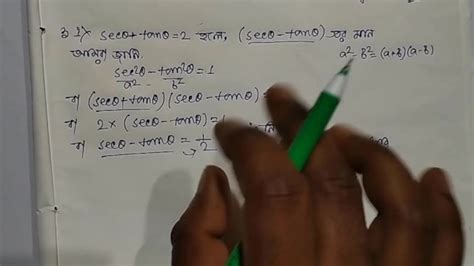 secθ + tanθ = 2 হলে, (secθ - tanθ) এর মান
আমরা জানি,
a² - b² = (a+b)(a-b)
sec²θ - tan²θ = 1
a² b²
বা (secθ + tanθ)(secθ - tanθ) =
বা 2 × (secθ - tanθ) = 1
বা secθ - tanθ = 1/2